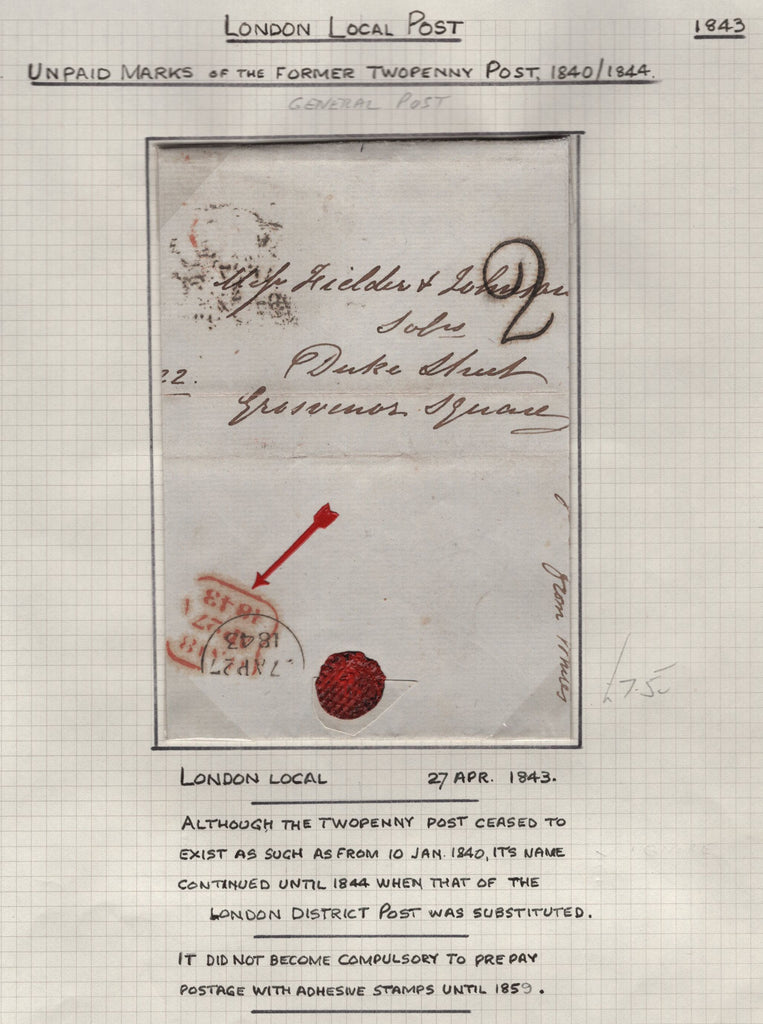 LONDON LOCAL POST
1843
UNPAID MARKS OF THE FORMER TWOPENNY POST, 1840/1844.
GENERAL POST
2
Fielder & Johnson
Solrs
22.
Duke Street
Grosvenor Square
from
1843
27
1843
AP27
£7.50
LONDON LOCAL 27 APR. 1843.
ALTHOUGH THE TWOPENNY POST CEASED TO
EXIST AS SUCH AS FROM 10 JAN. 1840, IT'S NAME
CONTINUED UNTIL 1844 WHEN THAT OF THE
LONDON DISTRICT POST WAS SUBSTITUTED.
IT DID NOT BECOME COMPULSORY TO PREPAY
POSTAGE WITH ADHESIVE STAMPS UNTIL 1859.